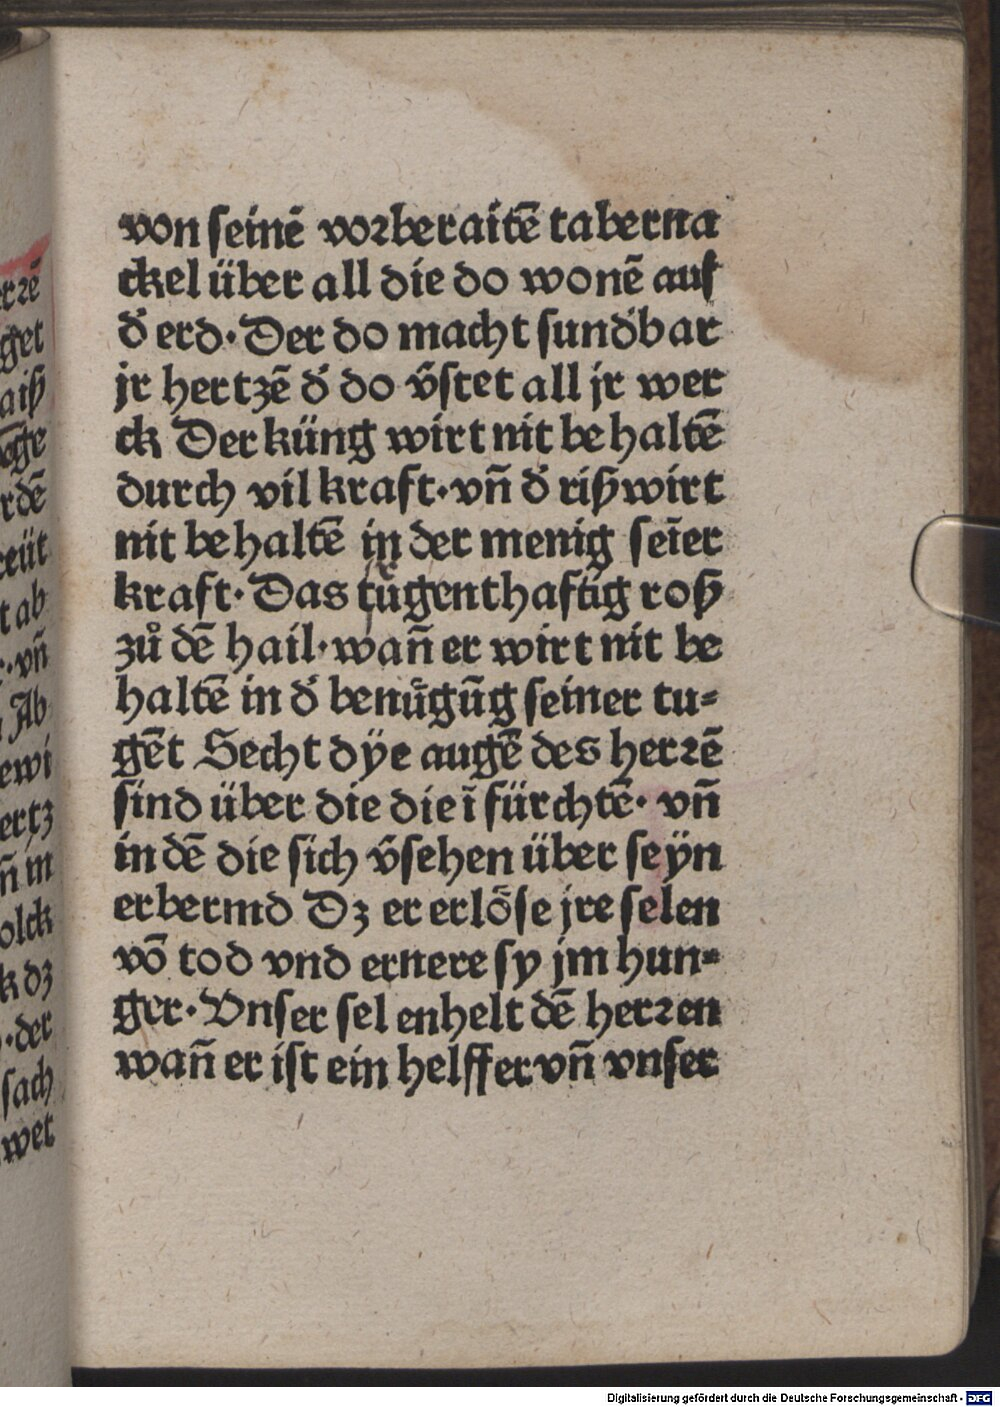 von seinē vorberaitē taberna
ckel über all die do wonē auf
d̕ erd· Der do macht sund̕bar
jr hertzē d̕ do v̕stet all jr wer
ck Der küng wirt nit behaltē
durch vil kraft· vn̄ d̕ riß wirt
nit behaltē in der menig seīer
kraft· Das tugenthaftig roß
zů dē hail· wan̄ er wirt nit be
haltē in d̕ benu̍gūg seiner tu-
gēt Secht dÿe augē des herrē
sind über die die ī fürchtē· vn̄
in dē die sich v̕sehen über seÿn
erbermd Dz er erlo̎se jre selen
vō tod vnd ernere sy jm hun-
ger· Vnser sel enhelt dē herren
wan̄ er ist ein helffer vn̄ vnser
get
aiß
rdē
reüt
t ab
vn̄
Ab
ewi
ertz
n̄ in
olck
k dz
·der
sach
wet
Digitalisierung gefördert durch die Deutsche Forschungsgemeinschaft - DFG